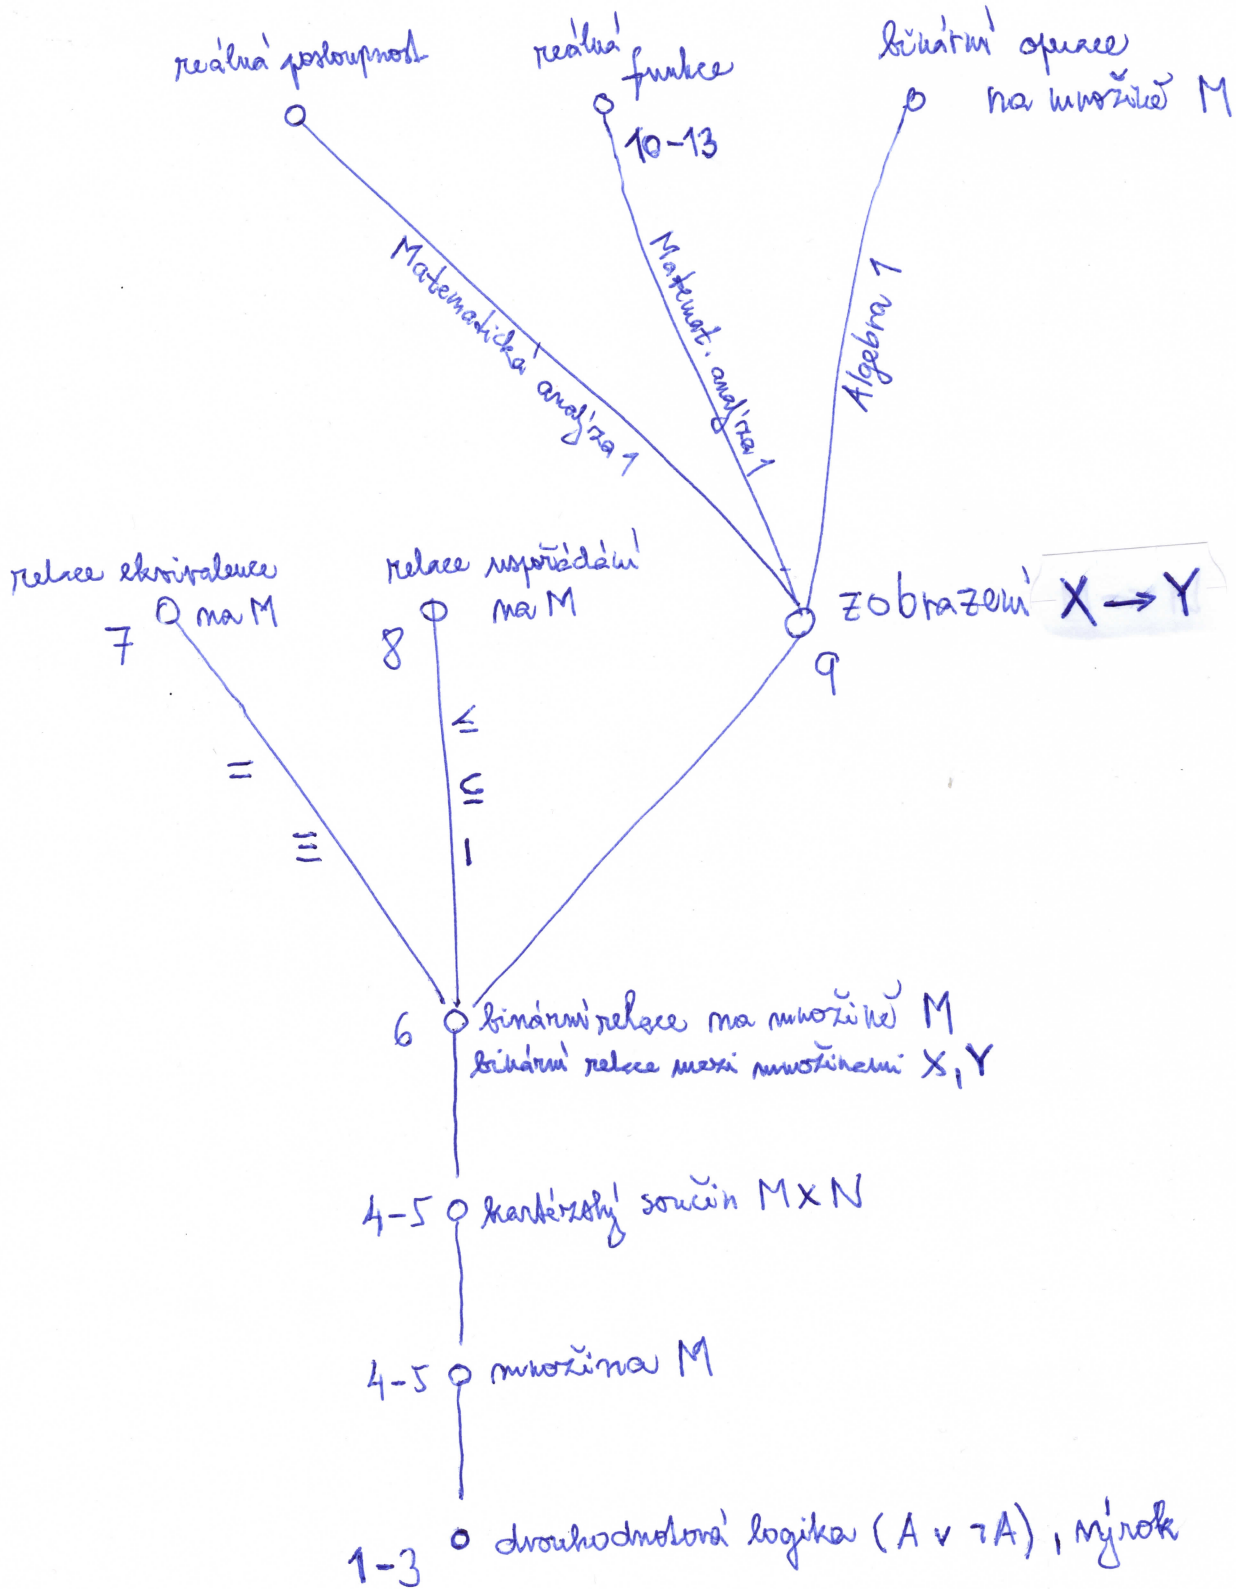 reálná posloupnost
reálná
funkce
binární operace
na množině M
10-13
Matematická analýza 1
Matemat. analýza 1
Algebra 1
relace ekvivalence
na M
7
relace uspořádání
na M
8
zobrazení X → Y
9
=
≡
≤
⊆
|
6 binární relace na množině M
binární relace mezi množinami X, Y
4-5 kartézský součin M×N
4-5 množina M
1-3 dvouhodnotová logika (A ∨ ¬A), výrok